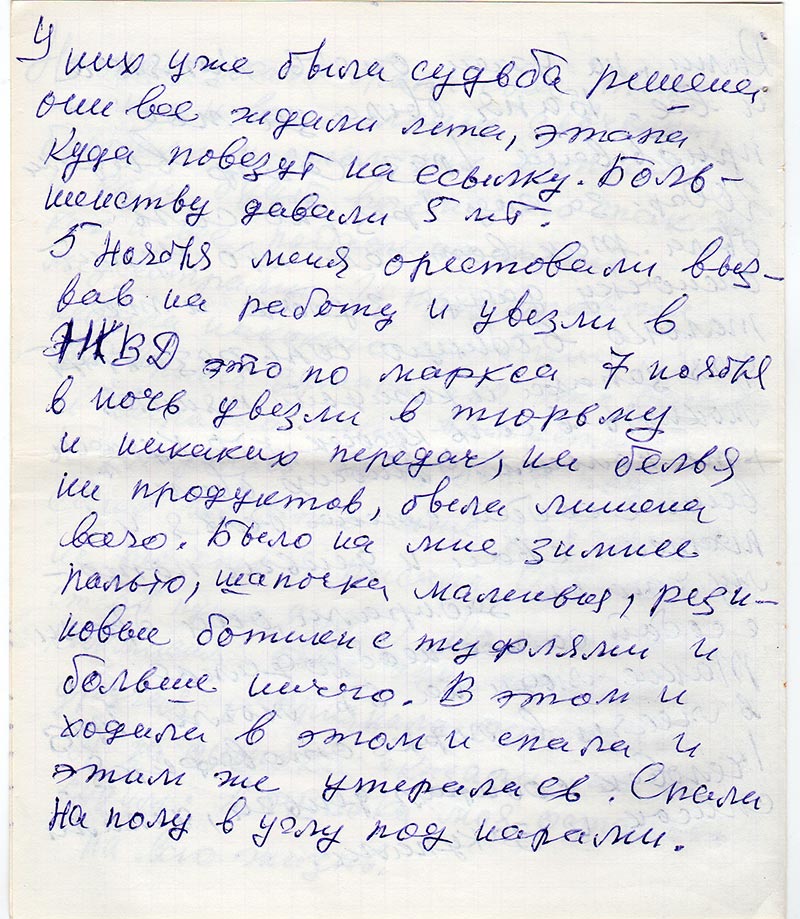 У них уже была судьба решена,
они все ждали лета, этапа
куда повезут на ссылку. Боль-
шенству давали 5 лет.
5 Ноября меня орестовали выз-
вав на работу и увезли в
НКВД это по маркса 7 ноября
в ночь увезли в тюрьму
и никаких передач, ни белья
ни продуктов, была лишена
всего. Было на мне зимнее
пальто, шапочка маленькая, рези-
новые ботики с туфлями и
больше ничего. В этом и
ходила в этом и спала и
этим же утералась. Спали
на полу в углу под нарами.